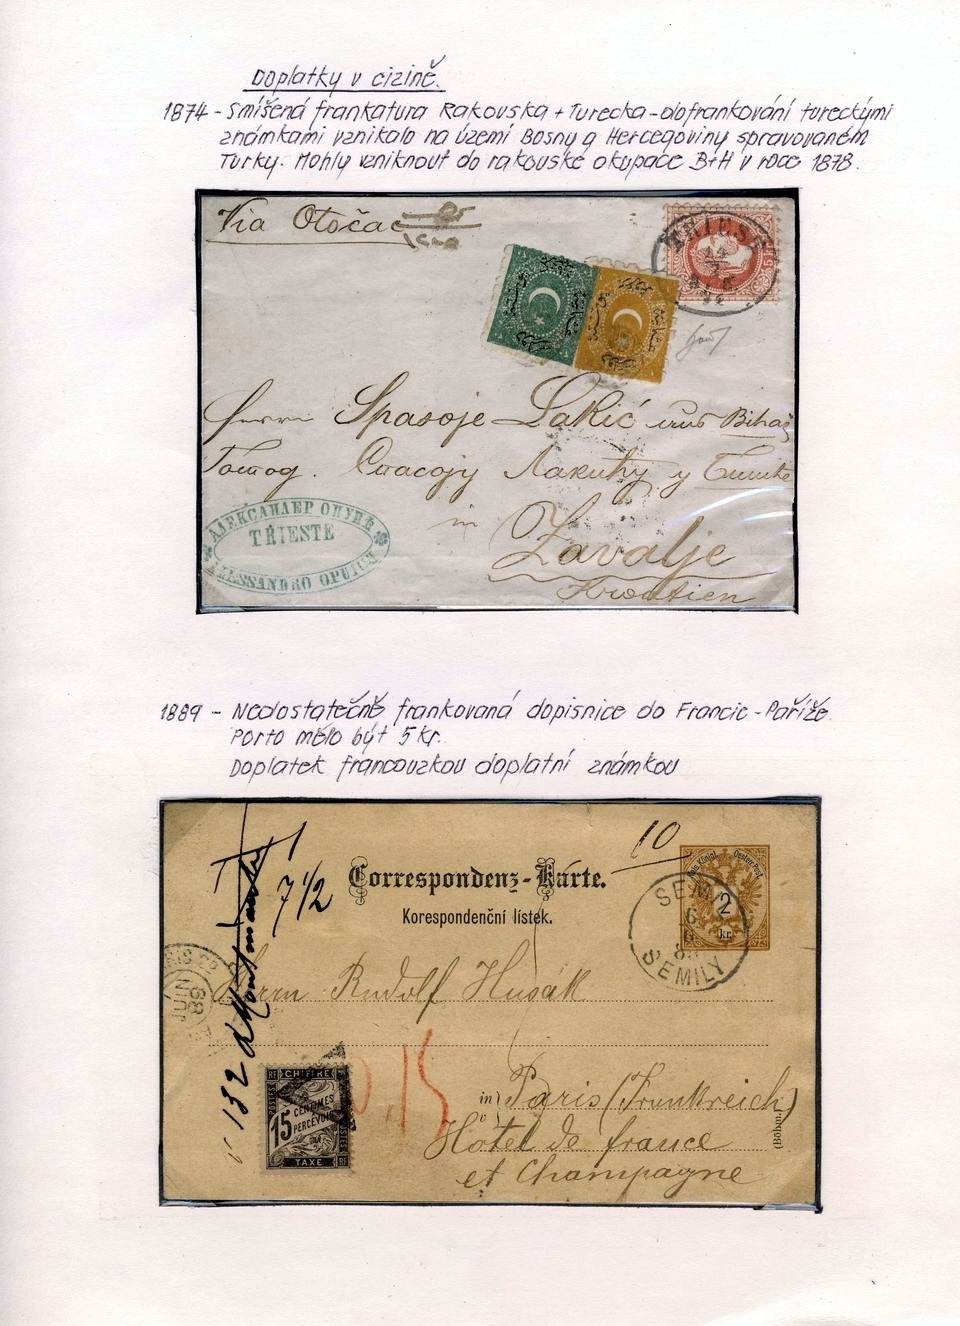 Doplatky v cizině.
1874 - Smíšená frankatura Rakouska + Turecka - dofrankování tureckými
známkami vznikalo na území Bosny a Hercegoviny spravovaném
Turky. Mohly vzniknout do rakouské okupace B+H v roce 1878.
Via Otočac
TRIEST
Herrn Spasoje Lakić aus Bihać
Спасоју Лакићу у
in Zavalje
Kroatien
АЛЕКСАНДЕР ОПУИЋ
TRIESTE
ALESSANDRO OPUICH
1889 - Nedostatečně frankovaná dopisnice do Francie - Paříže
Porto mělo být 5 kr.
Doplatek francouzkou doplatní známkou
10
T
7 1/2
Correspondenz-Karte.
Korespondenční lístek.
Kais. Königl. Oesterr. Post.
2 kr.
SEMIL
6
SEMILY
Herrn Rudolf Husák
132
JUIN
0.15
in Paris (Frankreich)
Hôtel de france
et Champagne
(Böhm.)
RF CHIFFRE
15 CENTIMES
A PERCEVOIR
POSTES
TAXE RF